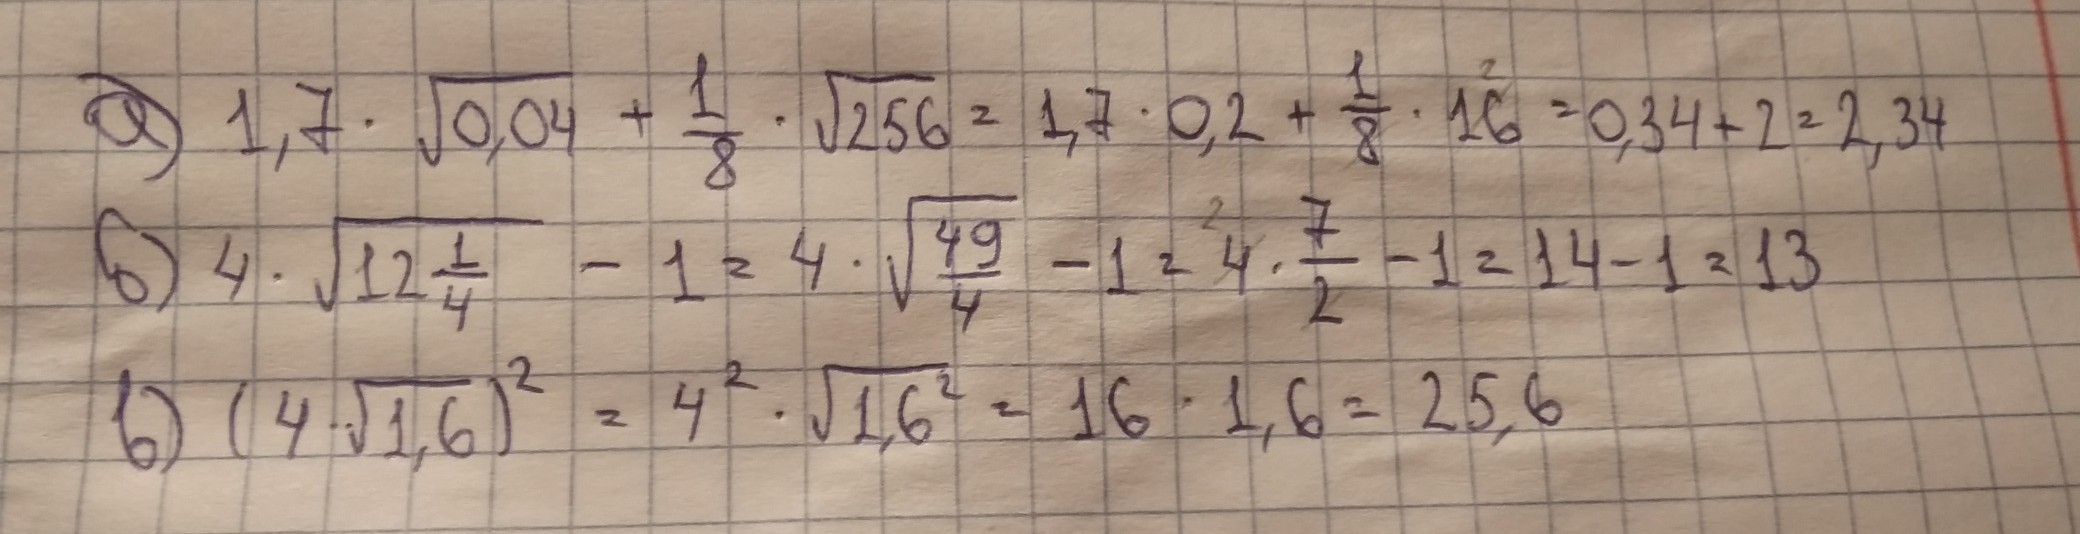 а) 1,7 · √0,04 + 1/8 · √256 = 1,7 · 0,2 + 1/8 · 16² = 0,34 + 2 = 2,34
б) 4 · √12 1/4 - 1 = 4 · √49/4 - 1 = ²4 · 7/2 - 1 = 14 - 1 = 13
в) (4 · √1,6)² = 4² · √1,6² = 16 · 1,6 = 25,6